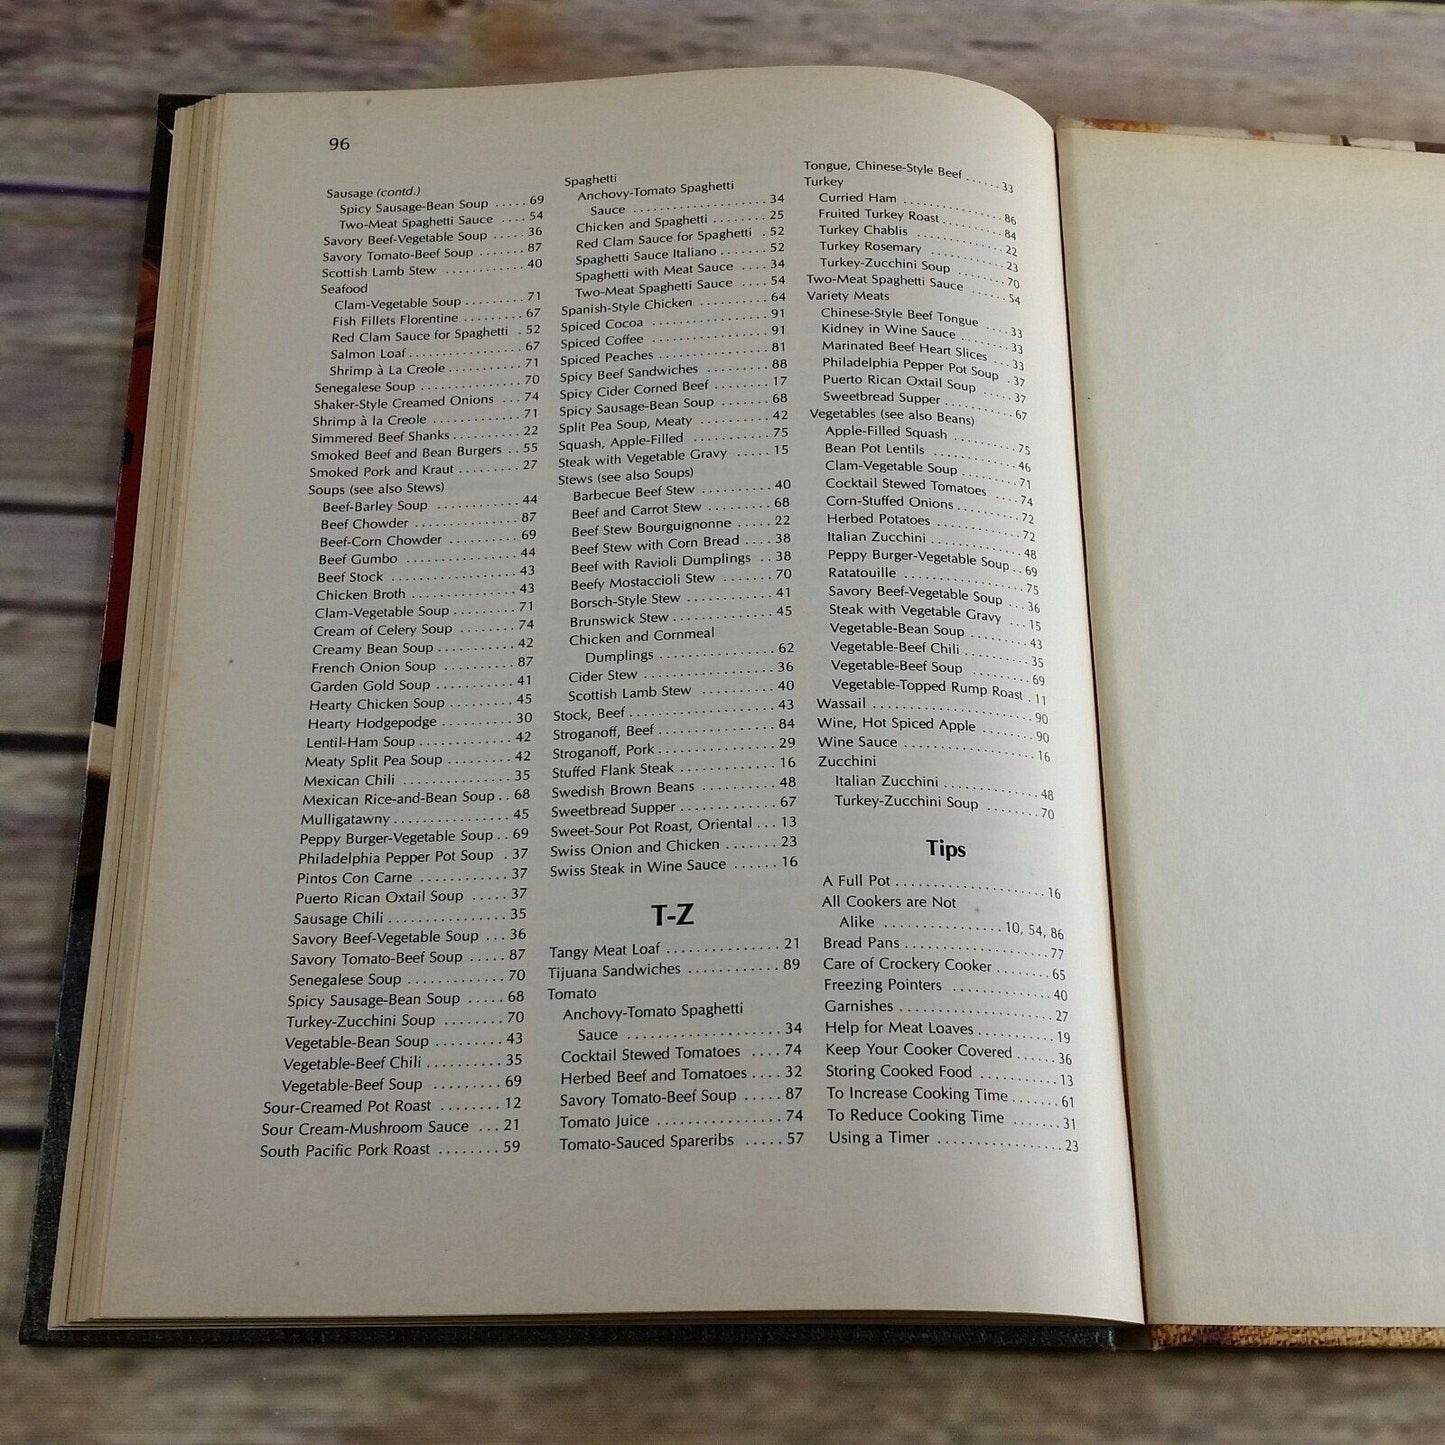 96
Sausage (contd.)
Spicy Sausage-Bean Soup ..... 69
Two-Meat Spaghetti Sauce .... 54
Savory Beef-Vegetable Soup ..... 36
Savory Tomato-Beef Soup ....... 87
Scottish Lamb Stew ............ 40
Seafood
Clam-Vegetable Soup ......... 71
Fish Fillets Florentine ........ 67
Red Clam Sauce for Spaghetti . 52
Salmon Loaf ................ 67
Shrimp à La Creole ........... 71
Senegalese Soup ............... 70
Shaker-Style Creamed Onions ... 74
Shrimp à la Creole ............. 71
Simmered Beef Shanks .......... 22
Smoked Beef and Bean Burgers .. 55
Smoked Pork and Kraut ......... 27
Soups (see also Stews)
Beef-Barley Soup ............ 44
Beef Chowder ............... 87
Beef-Corn Chowder .......... 69
Beef Gumbo ................ 44
Beef Stock .................. 43
Chicken Broth ............... 43
Clam-Vegetable Soup ......... 71
Cream of Celery Soup ........ 74
Creamy Bean Soup ........... 42
French Onion Soup .......... 87
Garden Gold Soup ........... 41
Hearty Chicken Soup ......... 45
Hearty Hodgepodge .......... 30
Lentil-Ham Soup ............. 42
Meaty Split Pea Soup ......... 42
Mexican Chili ............... 35
Mexican Rice-and-Bean Soup .. 68
Mulligatawny ................ 45
Peppy Burger-Vegetable Soup .. 69
Philadelphia Pepper Pot Soup . 37
Pintos Con Carne ............ 37
Puerto Rican Oxtail Soup ..... 37
Sausage Chili ................ 35
Savory Beef-Vegetable Soup ... 36
Savory Tomato-Beef Soup ..... 87
Senegalese Soup ............. 70
Spicy Sausage-Bean Soup ..... 68
Turkey-Zucchini Soup ........ 70
Vegetable-Bean Soup ......... 43
Vegetable-Beef Chili .......... 35
Vegetable-Beef Soup ......... 69
Sour-Creamed Pot Roast ........ 12
Sour Cream-Mushroom Sauce ... 21
South Pacific Pork Roast ........ 59
Spaghetti
Anchovy-Tomato Spaghetti
Sauce .................. 34
Chicken and Spaghetti ........ 25
Red Clam Sauce for Spaghetti . 52
Spaghetti Sauce Italiano ....... 52
Spaghetti with Meat Sauce .... 34
Two-Meat Spaghetti Sauce .... 54
Spanish-Style Chicken .......... 64
Spiced Cocoa ................. 91
Spiced Coffee ................. 91
Spiced Peaches ................ 81
Spicy Beef Sandwiches .......... 88
Spicy Cider Corned Beef ........ 17
Spicy Sausage-Bean Soup ....... 68
Split Pea Soup, Meaty .......... 42
Squash, Apple-Filled ........... 75
Steak with Vegetable Gravy ..... 15
Stews (see also Soups)
Barbecue Beef Stew .......... 40
Beef and Carrot Stew ......... 68
Beef Stew Bourguignonne ..... 22
Beef Stew with Corn Bread .... 38
Beef with Ravioli Dumplings .. 38
Beefy Mostaccioli Stew ....... 70
Borsch-Style Stew ............ 41
Brunswick Stew .............. 45
Chicken and Cornmeal
Dumplings ............... 62
Cider Stew .................. 36
Scottish Lamb Stew .......... 40
Stock, Beef .................... 43
Stroganoff, Beef ................ 84
Stroganoff, Pork ................ 29
Stuffed Flank Steak ............. 16
Swedish Brown Beans .......... 48
Sweetbread Supper ............. 67
Sweet-Sour Pot Roast, Oriental ... 13
Swiss Onion and Chicken ........ 23
Swiss Steak in Wine Sauce ...... 16
T-Z
Tangy Meat Loaf ............... 21
Tijuana Sandwiches ............ 89
Tomato
Anchovy-Tomato Spaghetti
Sauce .................... 34
Cocktail Stewed Tomatoes .... 74
Herbed Beef and Tomatoes .... 32
Savory Tomato-Beef Soup ..... 87
Tomato Juice ................ 74
Tomato-Sauced Spareribs ..... 57
Tongue, Chinese-Style Beef ...... 33
Turkey
Curried Ham ................ 86
Fruited Turkey Roast .......... 84
Turkey Chablis .............. 22
Turkey Rosemary ............ 23
Turkey-Zucchini Soup ........ 70
Two-Meat Spaghetti Sauce ...... 54
Variety Meats
Chinese-Style Beef Tongue .... 33
Kidney in Wine Sauce ........ 33
Marinated Beef Heart Slices ... 33
Philadelphia Pepper Pot Soup . 37
Puerto Rican Oxtail Soup ..... 37
Sweetbread Supper .......... 67
Vegetables (see also Beans)
Apple-Filled Squash .......... 75
Bean Pot Lentils ............. 46
Clam-Vegetable Soup ......... 71
Cocktail Stewed Tomatoes .... 74
Corn-Stuffed Onions .......... 72
Herbed Potatoes ............. 72
Italian Zucchini .............. 48
Peppy Burger-Vegetable Soup .. 69
Ratatouille .................. 75
Savory Beef-Vegetable Soup ... 36
Steak with Vegetable Gravy ... 15
Vegetable-Bean Soup ......... 43
Vegetable-Beef Chili .......... 35
Vegetable-Beef Soup ......... 69
Vegetable-Topped Rump Roast . 11
Wassail ....................... 90
Wine, Hot Spiced Apple ........ 90
Wine Sauce ................... 16
Zucchini
Italian Zucchini .............. 48
Turkey-Zucchini Soup ....... 70
Tips
A Full Pot .................... 16
All Cookers are Not
Alike ............... 10, 54, 86
Bread Pans .................... 77
Care of Crockery Cooker ........ 65
Freezing Pointers .............. 40
Garnishes ..................... 27
Help for Meat Loaves ........... 19
Keep Your Cooker Covered ...... 36
Storing Cooked Food ........... 13
To Increase Cooking Time ....... 61
To Reduce Cooking Time ....... 31
Using a Timer ................. 23